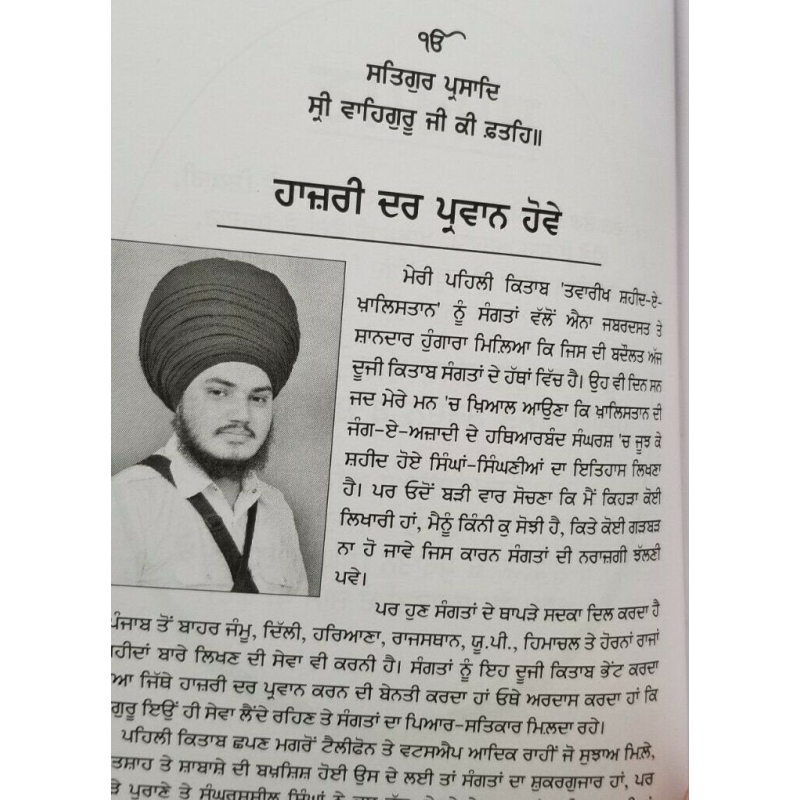 ੴ
ਸਤਿਗੁਰ ਪ੍ਰਸਾਦਿ
ਸ੍ਰੀ ਵਾਹਿਗੁਰੂ ਜੀ ਕੀ ਫ਼ਤਹਿ॥
ਹਾਜ਼ਰੀ ਦਰ ਪ੍ਰਵਾਨ ਹੋਵੇ
ਮੇਰੀ ਪਹਿਲੀ ਕਿਤਾਬ 'ਤਵਾਰੀਖ ਸ਼ਹੀਦ-ਏ-
ਖ਼ਾਲਿਸਤਾਨ' ਨੂੰ ਸੰਗਤਾਂ ਵੱਲੋਂ ਐਨਾ ਜਬਰਦਸਤ ਤੇ
ਸ਼ਾਨਦਾਰ ਹੁੰਗਾਰਾ ਮਿਲ਼ਿਆ ਕਿ ਜਿਸ ਦੀ ਬਦੌਲਤ ਅੱਜ
ਦੂਜੀ ਕਿਤਾਬ ਸੰਗਤਾਂ ਦੇ ਹੱਥਾਂ ਵਿੱਚ ਹੈ। ਉਹ ਵੀ ਦਿਨ ਸਨ
ਜਦ ਮੇਰੇ ਮਨ 'ਚ ਖ਼ਿਆਲ ਆਉਣਾ ਕਿ ਖ਼ਾਲਿਸਤਾਨ ਦੀ
ਜੰਗ-ਏ-ਅਜ਼ਾਦੀ ਦੇ ਹਥਿਆਰਬੰਦ ਸੰਘਰਸ਼ 'ਚ ਜੂਝ ਕੇ
ਸ਼ਹੀਦ ਹੋਏ ਸਿੰਘਾਂ-ਸਿੰਘਣੀਆਂ ਦਾ ਇਤਿਹਾਸ ਲਿਖਣਾ
ਹੈ। ਪਰ ਓਦੋਂ ਬੜੀ ਵਾਰ ਸੋਚਣਾ ਕਿ ਮੈਂ ਕਿਹੜਾ ਕੋਈ
ਲਿਖਾਰੀ ਹਾਂ, ਮੈਨੂੰ ਕਿੰਨੀ ਕੁ ਸੋਝੀ ਹੈ, ਕਿਤੇ ਕੋਈ ਗੜਬੜ
ਨਾ ਹੋ ਜਾਵੇ ਜਿਸ ਕਾਰਨ ਸੰਗਤਾਂ ਦੀ ਨਰਾਜ਼ਗੀ ਝੱਲਣੀ
ਪਵੇ।
ਪਰ ਹੁਣ ਸੰਗਤਾਂ ਦੇ ਥਾਪੜੇ ਸਦਕਾ ਦਿਲ ਕਰਦਾ ਹੈ
ਪੰਜਾਬ ਤੋਂ ਬਾਹਰ ਜੰਮੂ, ਦਿੱਲੀ, ਹਰਿਆਣਾ, ਰਾਜਸਥਾਨ, ਯੂ.ਪੀ., ਹਿਮਾਚਲ ਤੇ ਹੋਰਨਾਂ ਰਾਜਾਂ
ਬਾਰੇ ਲਿਖਣ ਦੀ ਸੇਵਾ ਵੀ ਕਰਨੀ ਹੈ। ਸੰਗਤਾਂ ਨੂੰ ਇਹ ਦੂਜੀ ਕਿਤਾਬ ਭੇਂਟ ਕਰਦਾ
ਜਿੱਥੇ ਹਾਜ਼ਰੀ ਦਰ ਪ੍ਰਵਾਨ ਕਰਨ ਦੀ ਬੇਨਤੀ ਕਰਦਾ ਹਾਂ ਓਥੇ ਅਰਦਾਸ ਕਰਦਾ ਹਾਂ ਕਿ
ਗੁਰੂ ਇਉਂ ਹੀ ਸੇਵਾ ਲੈਂਦੇ ਰਹਿਣ ਤੇ ਸੰਗਤਾਂ ਦਾ ਪਿਆਰ-ਸਤਿਕਾਰ ਮਿਲ਼ਦਾ ਰਹੇ।
ਪਹਿਲੀ ਕਿਤਾਬ ਛਪਣ ਮਗਰੋਂ ਟੈਲੀਫੋਨ ਤੇ ਵਟਸਐਪ ਆਦਿਕ ਰਾਹੀਂ ਜੋ ਸੁਝਾਅ ਮਿਲ਼ੇ,
ਤੇ ਸ਼ਾਬਾਸ਼ੇ ਦੀ ਬਖ਼ਸ਼ਿਸ਼ ਹੋਈ ਉਸ ਦੇ ਲਈ ਤਾਂ ਸੰਗਤਾਂ ਦਾ ਸ਼ੁਕਰਗੁਜਾਰ ਹਾਂ, ਪਰ
ਪੁਰਾਣੇ ਤੇ ਸੰਘਰਸ਼ਸ਼ੀਲ ਸਿੰਘਾਂ ਨੇ